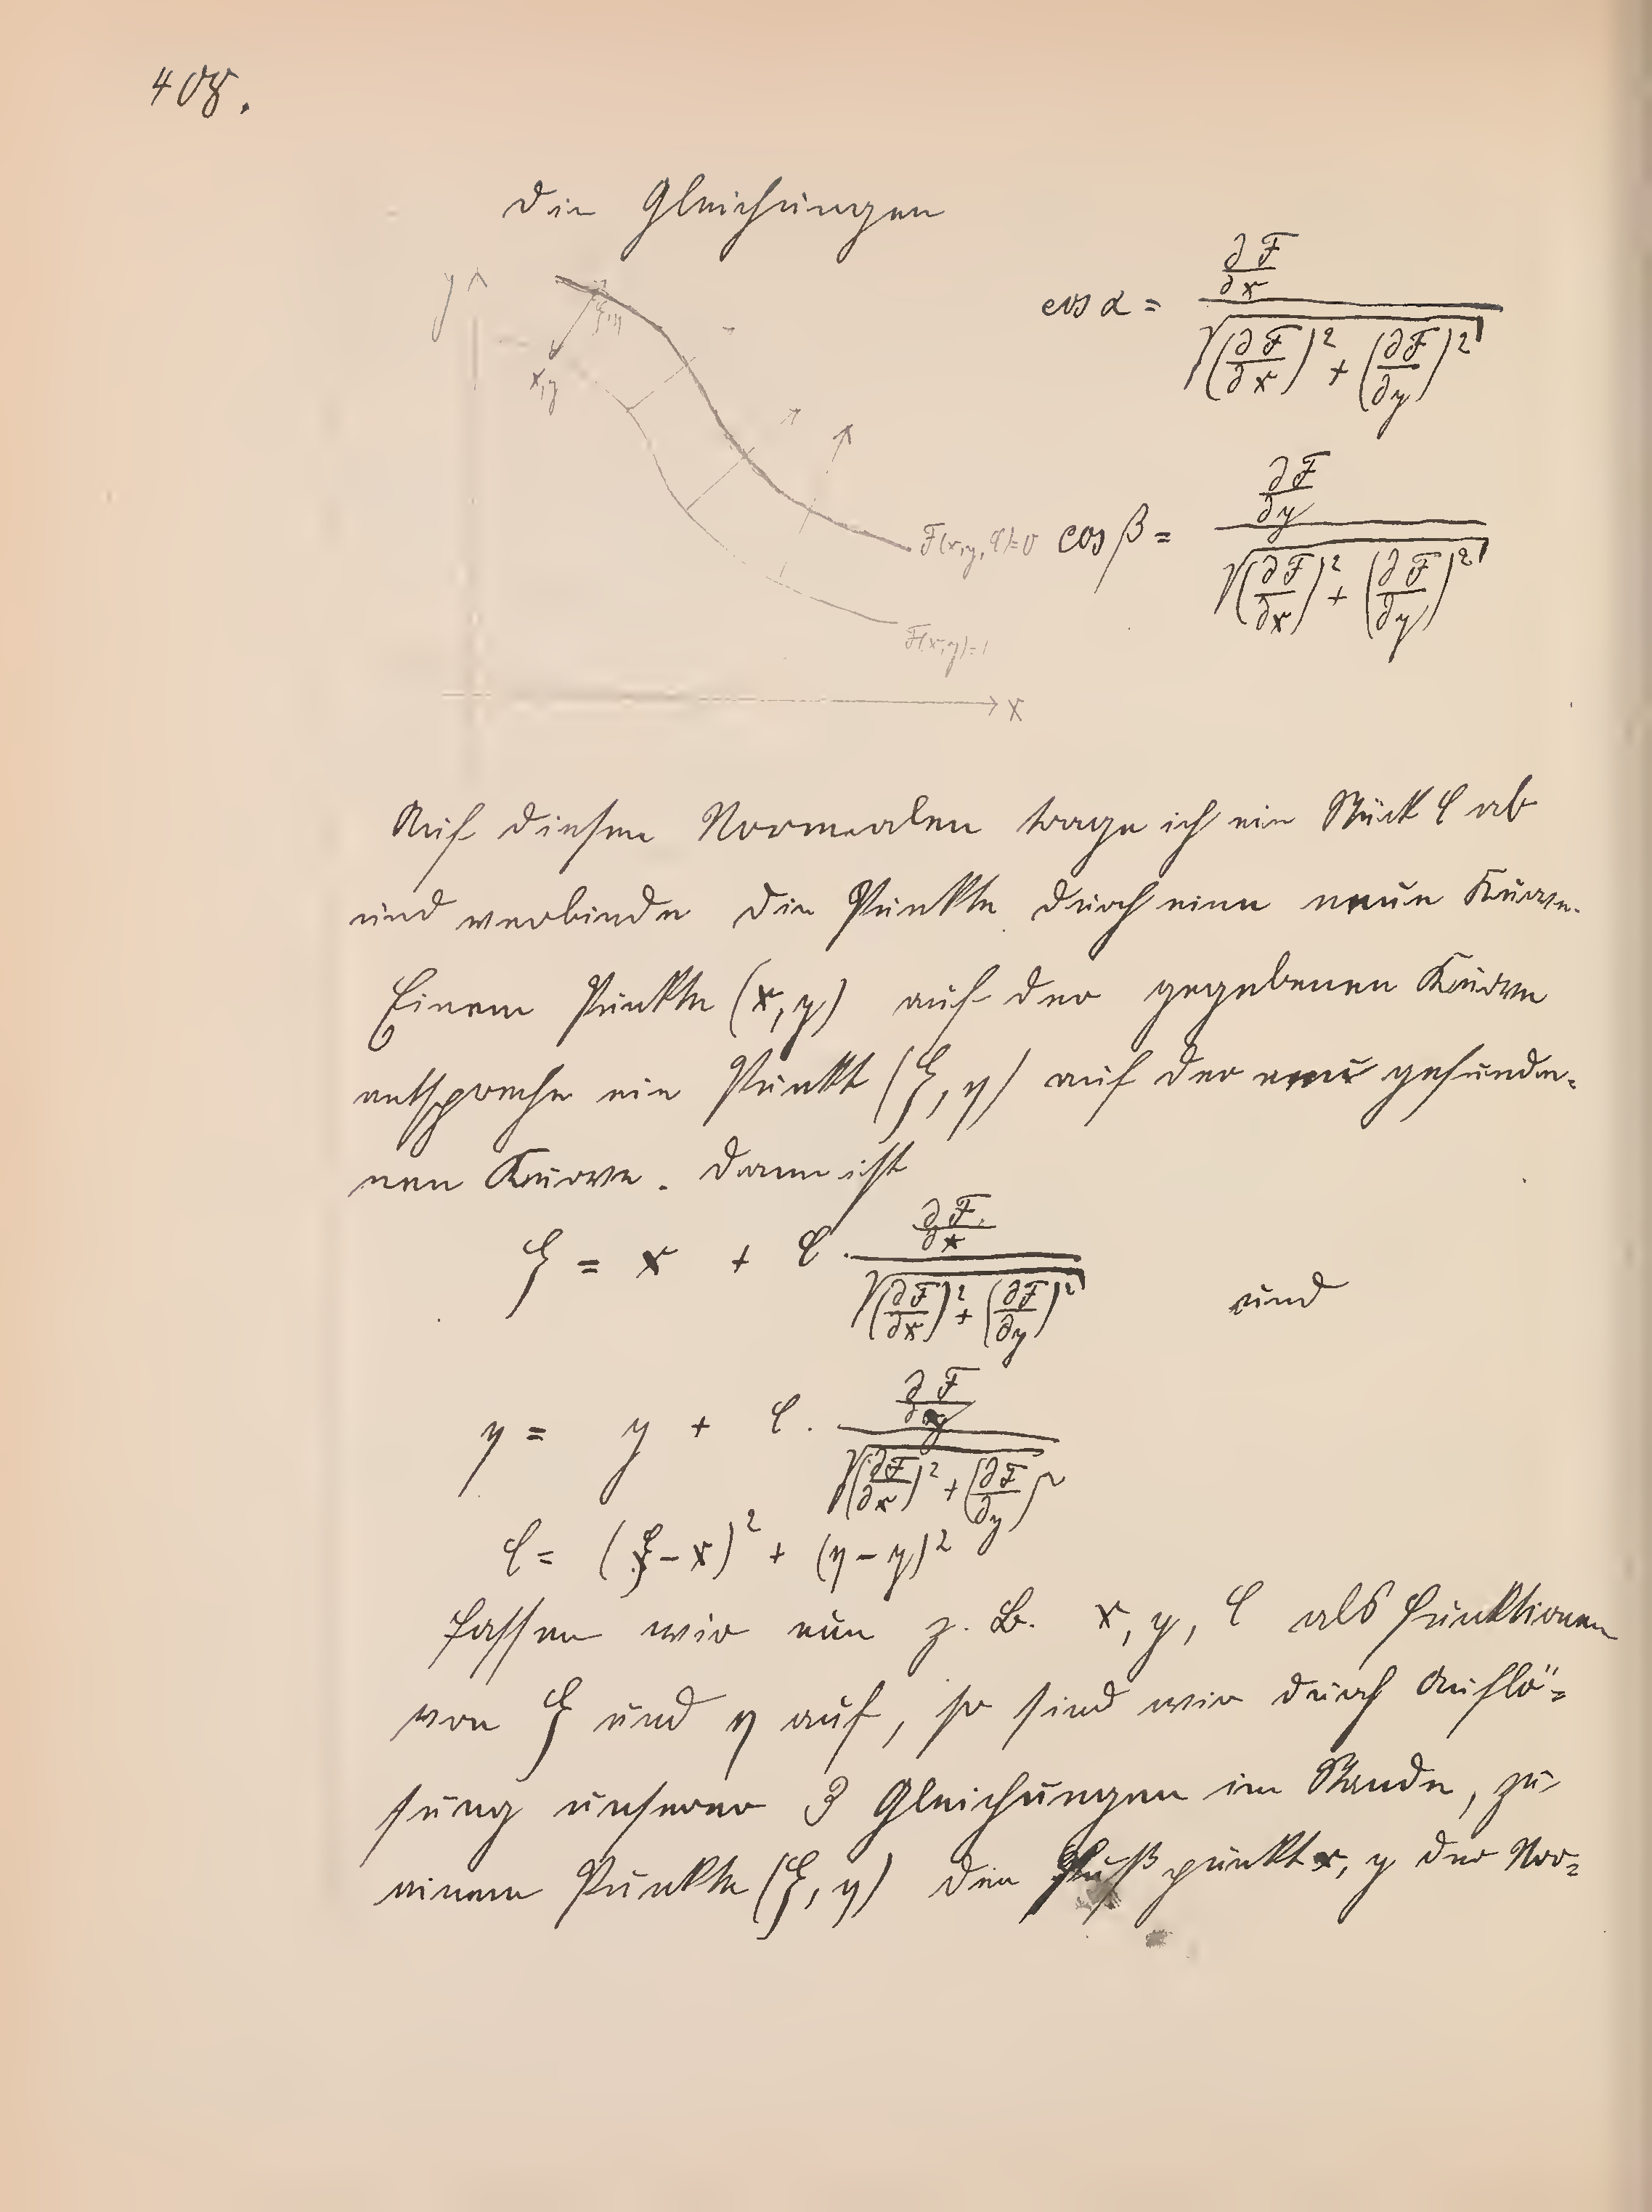 408.
die Gleichungen
cos α = \frac{\frac{∂F}{∂x}}{\sqrt{(\frac{∂F}{∂x})^2 + (\frac{∂F}{∂y})^2}}
y
ξ,η
x,y
cos β = \frac{\frac{∂F}{∂y}}{\sqrt{(\frac{∂F}{∂x})^2 + (\frac{∂F}{∂y})^2}}
F(x,y)=1
x
Auf diesen Normalen trage ich ein Stück l ab
und verbinde die Punkte durch eine neue Kurve.
Einem Punkte (x, y) auf der gegebenen Kurve
entspreche ein Punkt (ξ, η) auf der neu gefunde-
nen Kurve. Dann ist
ξ = x + l · \frac{\frac{∂F}{∂x}}{\sqrt{(\frac{∂F}{∂x})^2 + (\frac{∂F}{∂y})^2}} und
η = y + l · \frac{\frac{∂F}{∂y}}{\sqrt{(\frac{∂F}{∂x})^2 + (\frac{∂F}{∂y})^2}}
l = (ξ - x)^2 + (η - y)^2
Fassen wir nun z. B. x, y, l als Funktionen
von ξ und η auf, so sind wir durch Auflö-
sung unserer 3 Gleichungen im Stande, zu
einem Punkte (ξ, η) den Fußpunkt x, y der Nor-